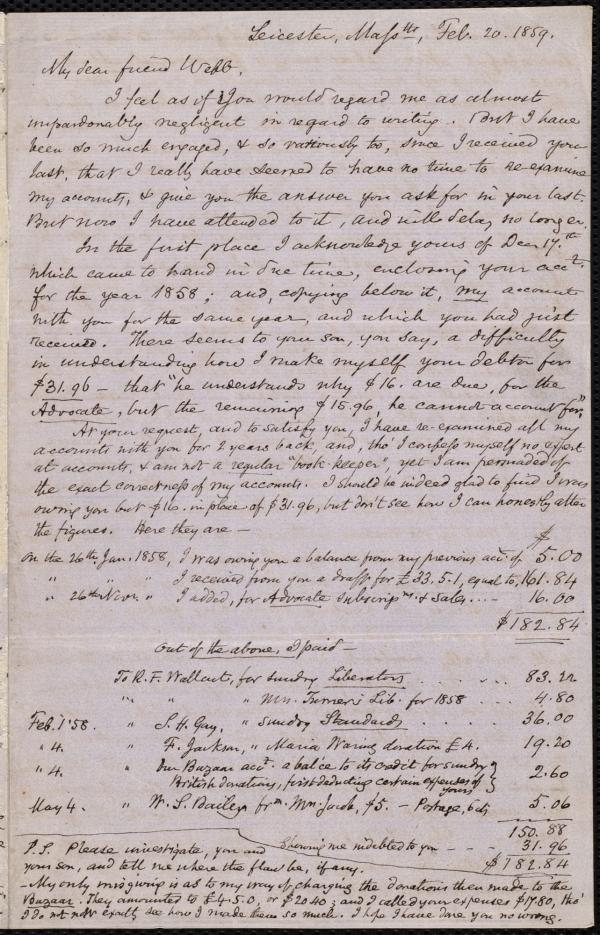 Leicester, Massts, Feb. 20. 1859.
My dear friend Webb,
I feel as if you would regard me as almost
unpardonably negligent in regard to writing. But I have
been so much engaged, & so variously to, since I received your
last, that I really have seemed to have no time to re-examine
my accounts, & give you the answer you ask for in your last.
But now I have attended to it, and will delay no longer.
In the first place I acknowledge yours of Decr. 17.th
which came to hand in due time, enclosing your acct.
for the year 1858; and, copying below it, my account
with you for the same year, and which you had just
received. There seems to your son, you say, a difficulty
in understanding how I make myself your debtor for
$31.96 – that "he understands why $16. are due, for the
Advocate, but the remaining $15.96, he cannot account for,"
At your request, and to satisfy you, I have re-examined all my
accounts with you for 2 years back, and, tho' I confess myself no expert
at accounts, & am not a regular "book-keeper", yet I am persuaded of
the exact correctness of my accounts. I should be indeed glad to find I was
owing you but $16. in place of $31.96, but don't see how I can honestly alter
the figures. Here they are –
$
On the 26th Jan. 1858, I was owing you a balance from my previous acct. of 5.00
" " " I received from you a draft for £33.5.1, equal to, 161.84
" 26th Novr. " I added, for Advocate subscripns. & sales . . . - 16.00
$182.84
Out of the above, I paid –
To R. F. Wallcut, for sundry Liberators . . . . . . 83.22
" " " Mrs. Turner's Lib. for 1858 . . . . 4.80
Feb. 1 '58. " S. H. Gay, " sundry Standards . . . . 36.00
" 4. " F. Jackson, " Maria Waring donation £4. 19.20
" 4. Our Bazaar acct. a balce to its credit for sundry
British donations, first deducting certain expenses of
yours 2.60
May 4. " W. S. Bailey frm. Mrs. Jacob, $5. – Postage, 6cts 5.06
150.88
Showing me indebted to you – – – 31.96
$182.84
P.S. Please investigate, you and
your son, and tell me where the flaw be, if any.
– My only misgiving is as to my way of charging the donations then made to the
Bazaar. They amounted to £4.5.0, or $20.40; and I called your expenses $17.80, tho'
I do not now exactly see how I made them so much. I hope I have done you no wrong.